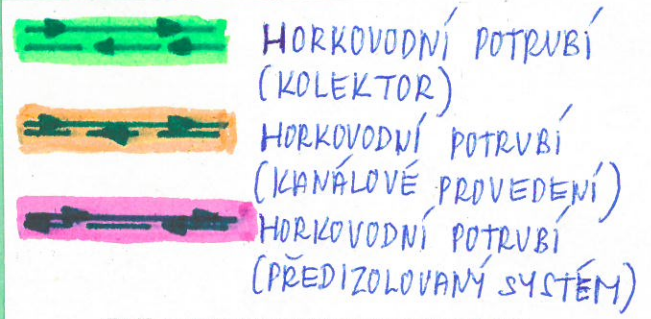 HORKOVODNÍ POTRUBÍ
(KOLEKTOR)
HORKOVODNÍ POTRUBÍ
(KANÁLOVÉ PROVEDENÍ)
HORKOVODNÍ POTRUBÍ
(PŘEDIZOLOVANÝ SYSTÉM)